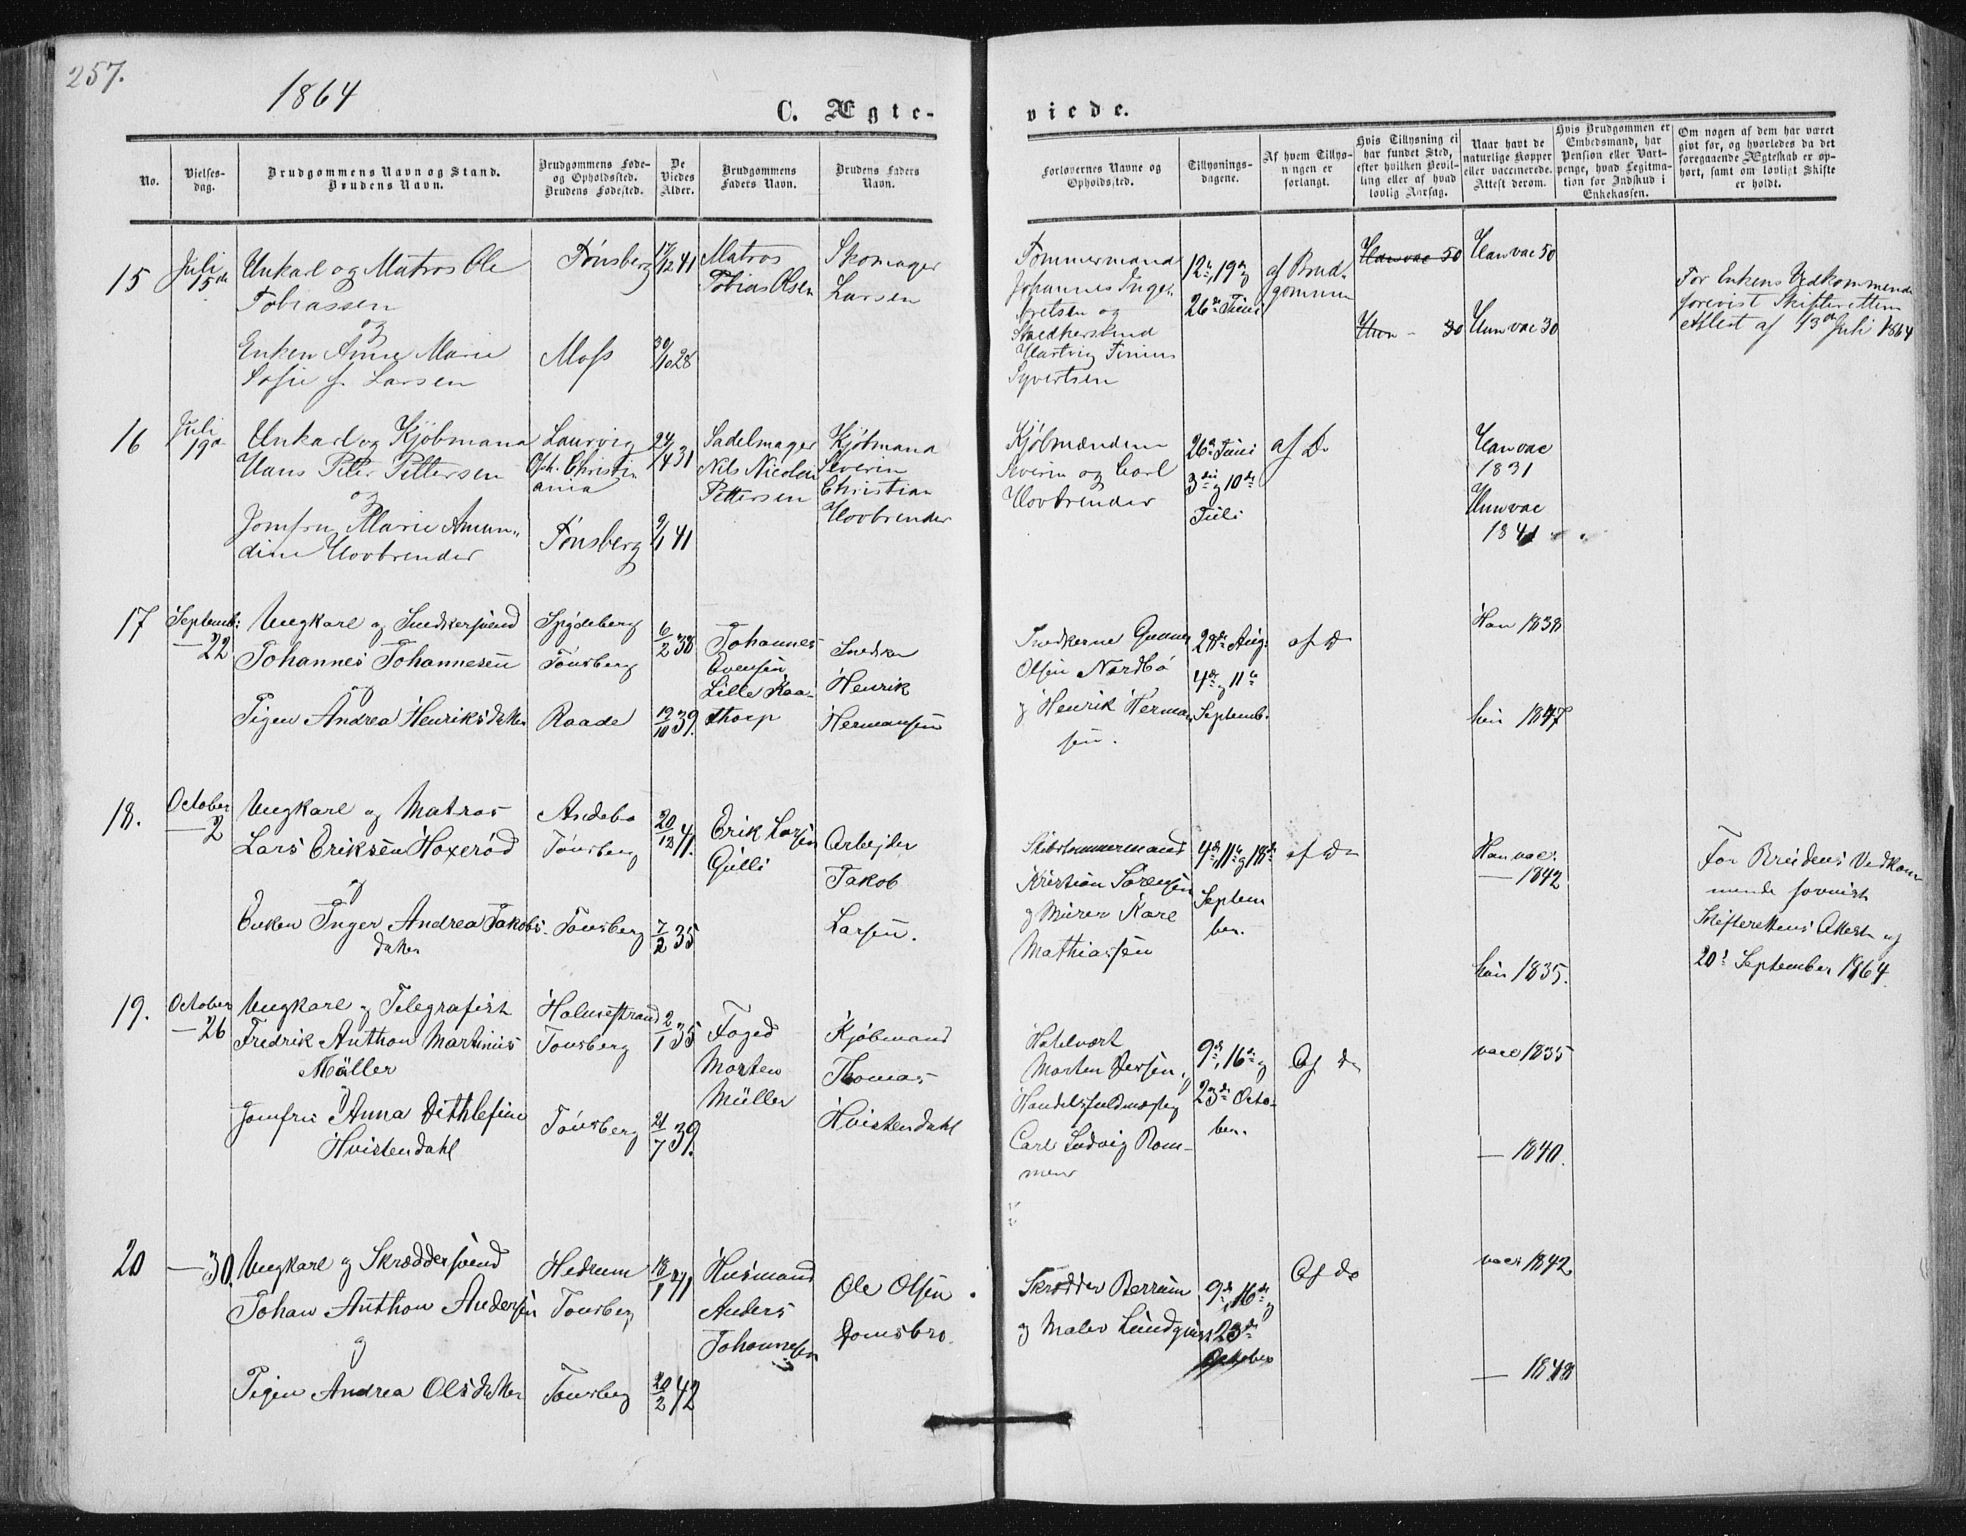 257.
1864
C. Ægte-
viede.
No.
Vielses-
dag.
Brudgommens Navn og Stand.
Brudens Navn.
Brudgommens Føde-
og Opholdssted.
Brudens Fødested.
De
Viedes
Alder.
Brudgommens
Faders Navn.
Brudens Faders
Navn.
Forlovernes Navne og
Opholdssted.
Tillysnings-
dagene.
Af hvem Tillys-
ningen er
forlangt.
Hvis Tillysning ei
har fundet Sted,
efter hvilken Bevil-
ling eller af hvad
lovlig Aarsag.
Naar havt de
naturlige Kopper
eller vaccinerede.
Attest derom.
Hvis Brudgommen er
Embedsmand, har
Pension eller Vart-
penge, hvad Legitma-
tion for Indskud i
Enkekassen.
Om nogen af dem har været
gift før, og hvorledes da det
foregaaende Ægteskab er op-
hørt, samt om lovligt Skifte
er holdt.
15
Juli
15de
Unkarl og Matros Ole
Tobiassen
og
Enken Anne Marie
Sofie f. Larsen
Tønsberg
Moss
17/12 41
30/10 28
Matros
Tobias Olsen
Skomager
Larsen
Tømmermand
Johannes Inge-
bretsen og
Snedkersvend
Hartvig
Syvertsen
12te, 19de og
26de Juni
af Brud-
gommen
Han vac 50
Hun - 30
Han vac 50
Hun vac 30
For Enkens Vedkommende
forevist Skifteretten
Attest af 13de Juli 1864
16
Juli
19de
Unkarl og Kjøbmand
Hans Peter Pettersen
og
Jomfru Marie Aman-
dine Hovbrender
Laurvig
Oph. Christi-
ania
Tønsberg
24/4 31
9/1 41
Sadelmager
Nils Nicolai
Pettersen
Kjøbmand
Severin
Christian
Hovbrender
Kjøbmændene
Severin og Carl
Hovbrender
26de Juni
3die og 10de
Juli
af Do
Han vac
1831
Hun vac
1841
17
Septemb:
— 22
Ungkarl og Snedkersvend
Johannes Johannesen
og
Pigen Andrea Henriksdatter
Spydeberg
Tønsberg
Raade
6/2 38
19/10 39.
Johannes
Evensen
Lille Kaa-
thorp
Snedker
Henrik
Hermansen
Snedkerne Gunner
Olsen Nordbø
og Henrik Herman-
sen.
28de Aug:
4de og 11te
Septemb.
af Do
Han 1838
hun 1847
18.
October
— 2
Ungkarl og Matros
Lars Eriksen Hoxerød
og
Enken Inger Andrea Jakobs-
datter
Andebo
Tønsberg
Tønsberg
20/12 41.
7/2 35
Erik Larsen
Gulli
Arbejder
Jakob
Larsen.
Skibstømmermand
Kristian Sørensen
og Murer Karl
Mathiassen
4de, 11te og 18de
Septem
ber.
af Do
Han vac.
— 1842
hun 1835.
For Brudens Vedkom-
mende forevist
Skifterettens Attest af
20de September 1864.
19.
October
— 26
Ungkarl og Telegrafist
Fredrik Anthon Martinius
Müller
og
Jomfru Anna Dithlefine
Hvistendahl
Holmestrand
Tønsberg
Tønsberg
2/1 35
21/7 39.
Foged
Morten
Müller
Kjøbmand
Thomas
Hvistendahl
Hotelvært
Morten
Handelsfuldmægtig
Carl Ludvig Rom-
men
9de, 16de og
23de Octo-
ber.
Af do
vacc 1835
— 1840.
20
— 30.
Ungkarl og Skræddersvend
Johan Anthon Andersen
og
Pigen Andrea Olsdatter
Hedrum
Tønsberg
Tønsberg
18/1 41
20/2 42
Husmand
Anders
Johannesen
Ole Olsen
Skrædder Berrum
og Maler Lundquist
9de, 16de og
23de
October
Af do
vacc 1842
— 1848